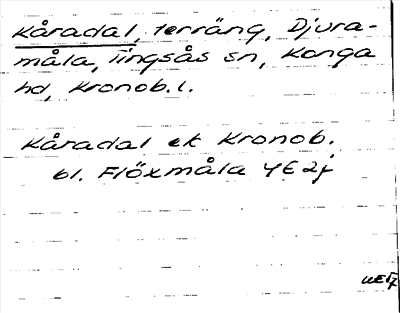 Kåradal, terräng, Djura-
måla, Tingsås sn, Konga
hd, Kronob. l.
Kåradal ek Kronob.
bl. Flöxmåla 4E 2j